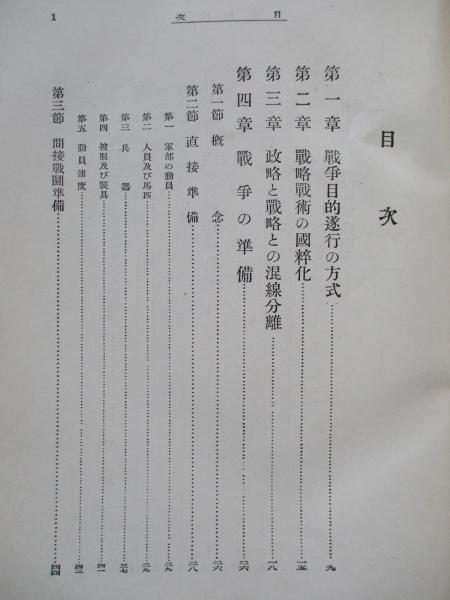 目次 1
目次
第一章 戰爭目的遂行の方式 九
第二章 戰略戰術の國粹化 一五
第三章 政略と戰略との混線分離 一八
第四章 戰爭の準備 二六
第一節 概念 二六
第二節 直接準備 二八
第一 軍部の動員 二九
第二 人員及び馬匹 二九
第三 兵器 三七
第四 被服及び裝具 四一
第五 動員速度 四二
第三節 間接戰鬪準備 四四